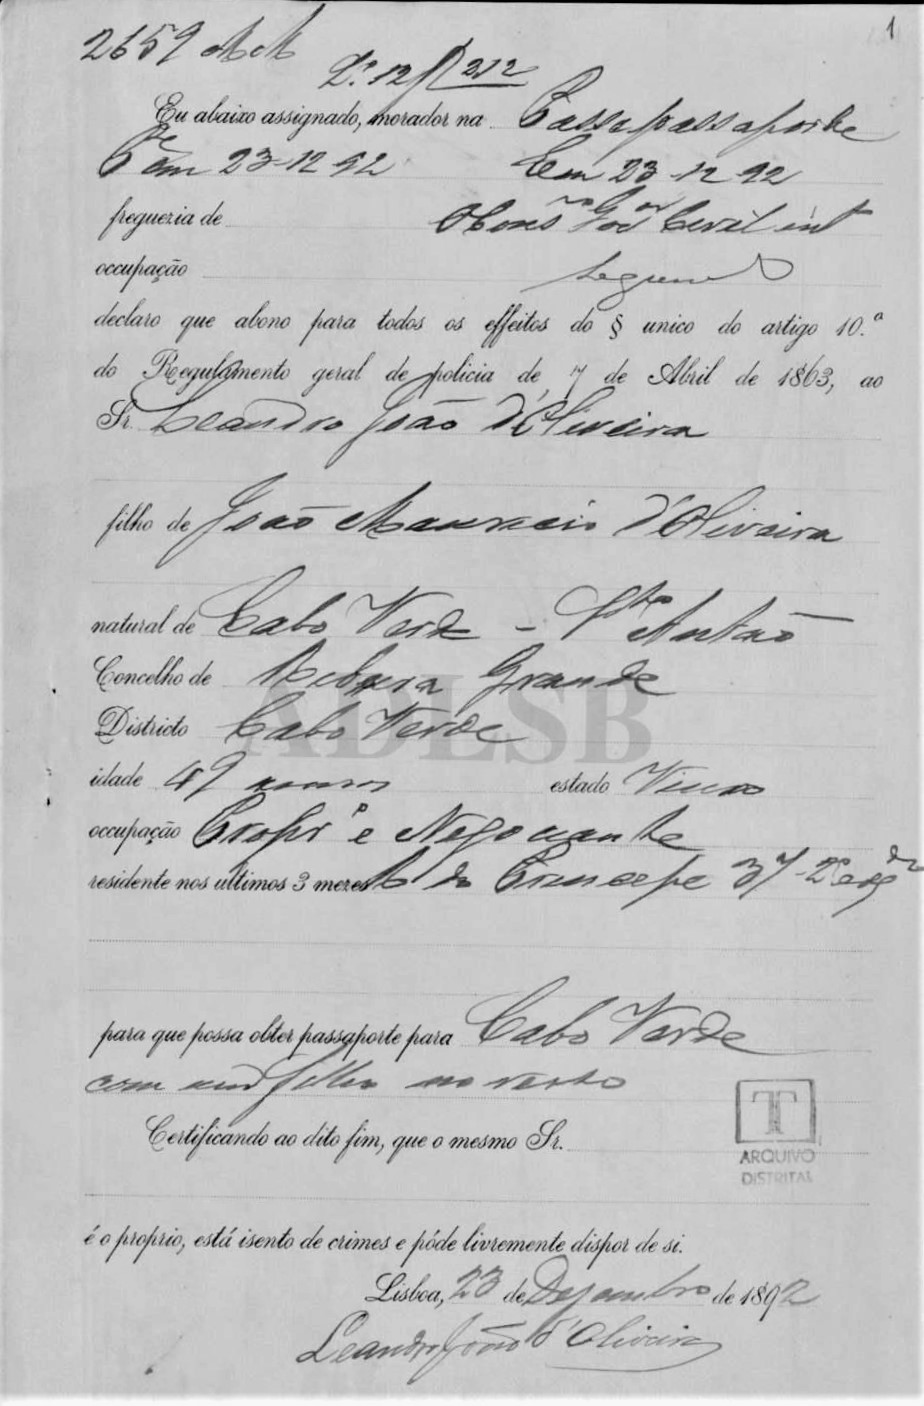 1
2659
Lº 12 fl 212
Eu abaixo assignado, morador na Passe passaporte
Pe em 23-12-92 Em 23-12-92
freguezia de O Cons.ro Gov.or Civil int
occupação
declaro que abono para todos os effeitos do § unico do artigo 10.º
do Regulamento geral de policia de 7 de Abril de 1863, ao
Sr. Leandro João d'Oliveira
filho de João Mauricio d'Oliveira
natural de Cabo Verde - Sto Antão
Concelho de Ribeira Grande
Districto Cabo Verde
idade 49 annos estado Viuvo
occupação Propr.º e Negociante
residente nos ultimos 3 mezes R do Principe 37-2º
para que possa obter passaporte para Cabo Verde
com um filho no verso
Certificando ao dito fim, que o mesmo Sr.
é o proprio, está isento de crimes e póde livremente dispor de si.
Lisboa, 23 de Dezembro de 1892
Leandro João d'Oliveira
ADLSB
T
ARQUIVO
DISTRITAL